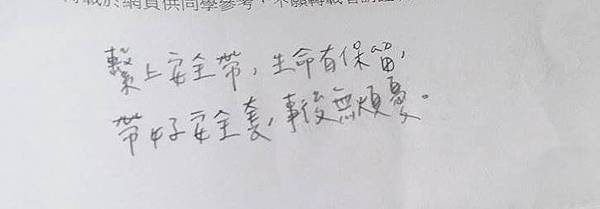 轉載於網頁供同學參考，不願轉載者請註
繫上安全帶，生命有保留，
帶好安全套，事後無煩憂。